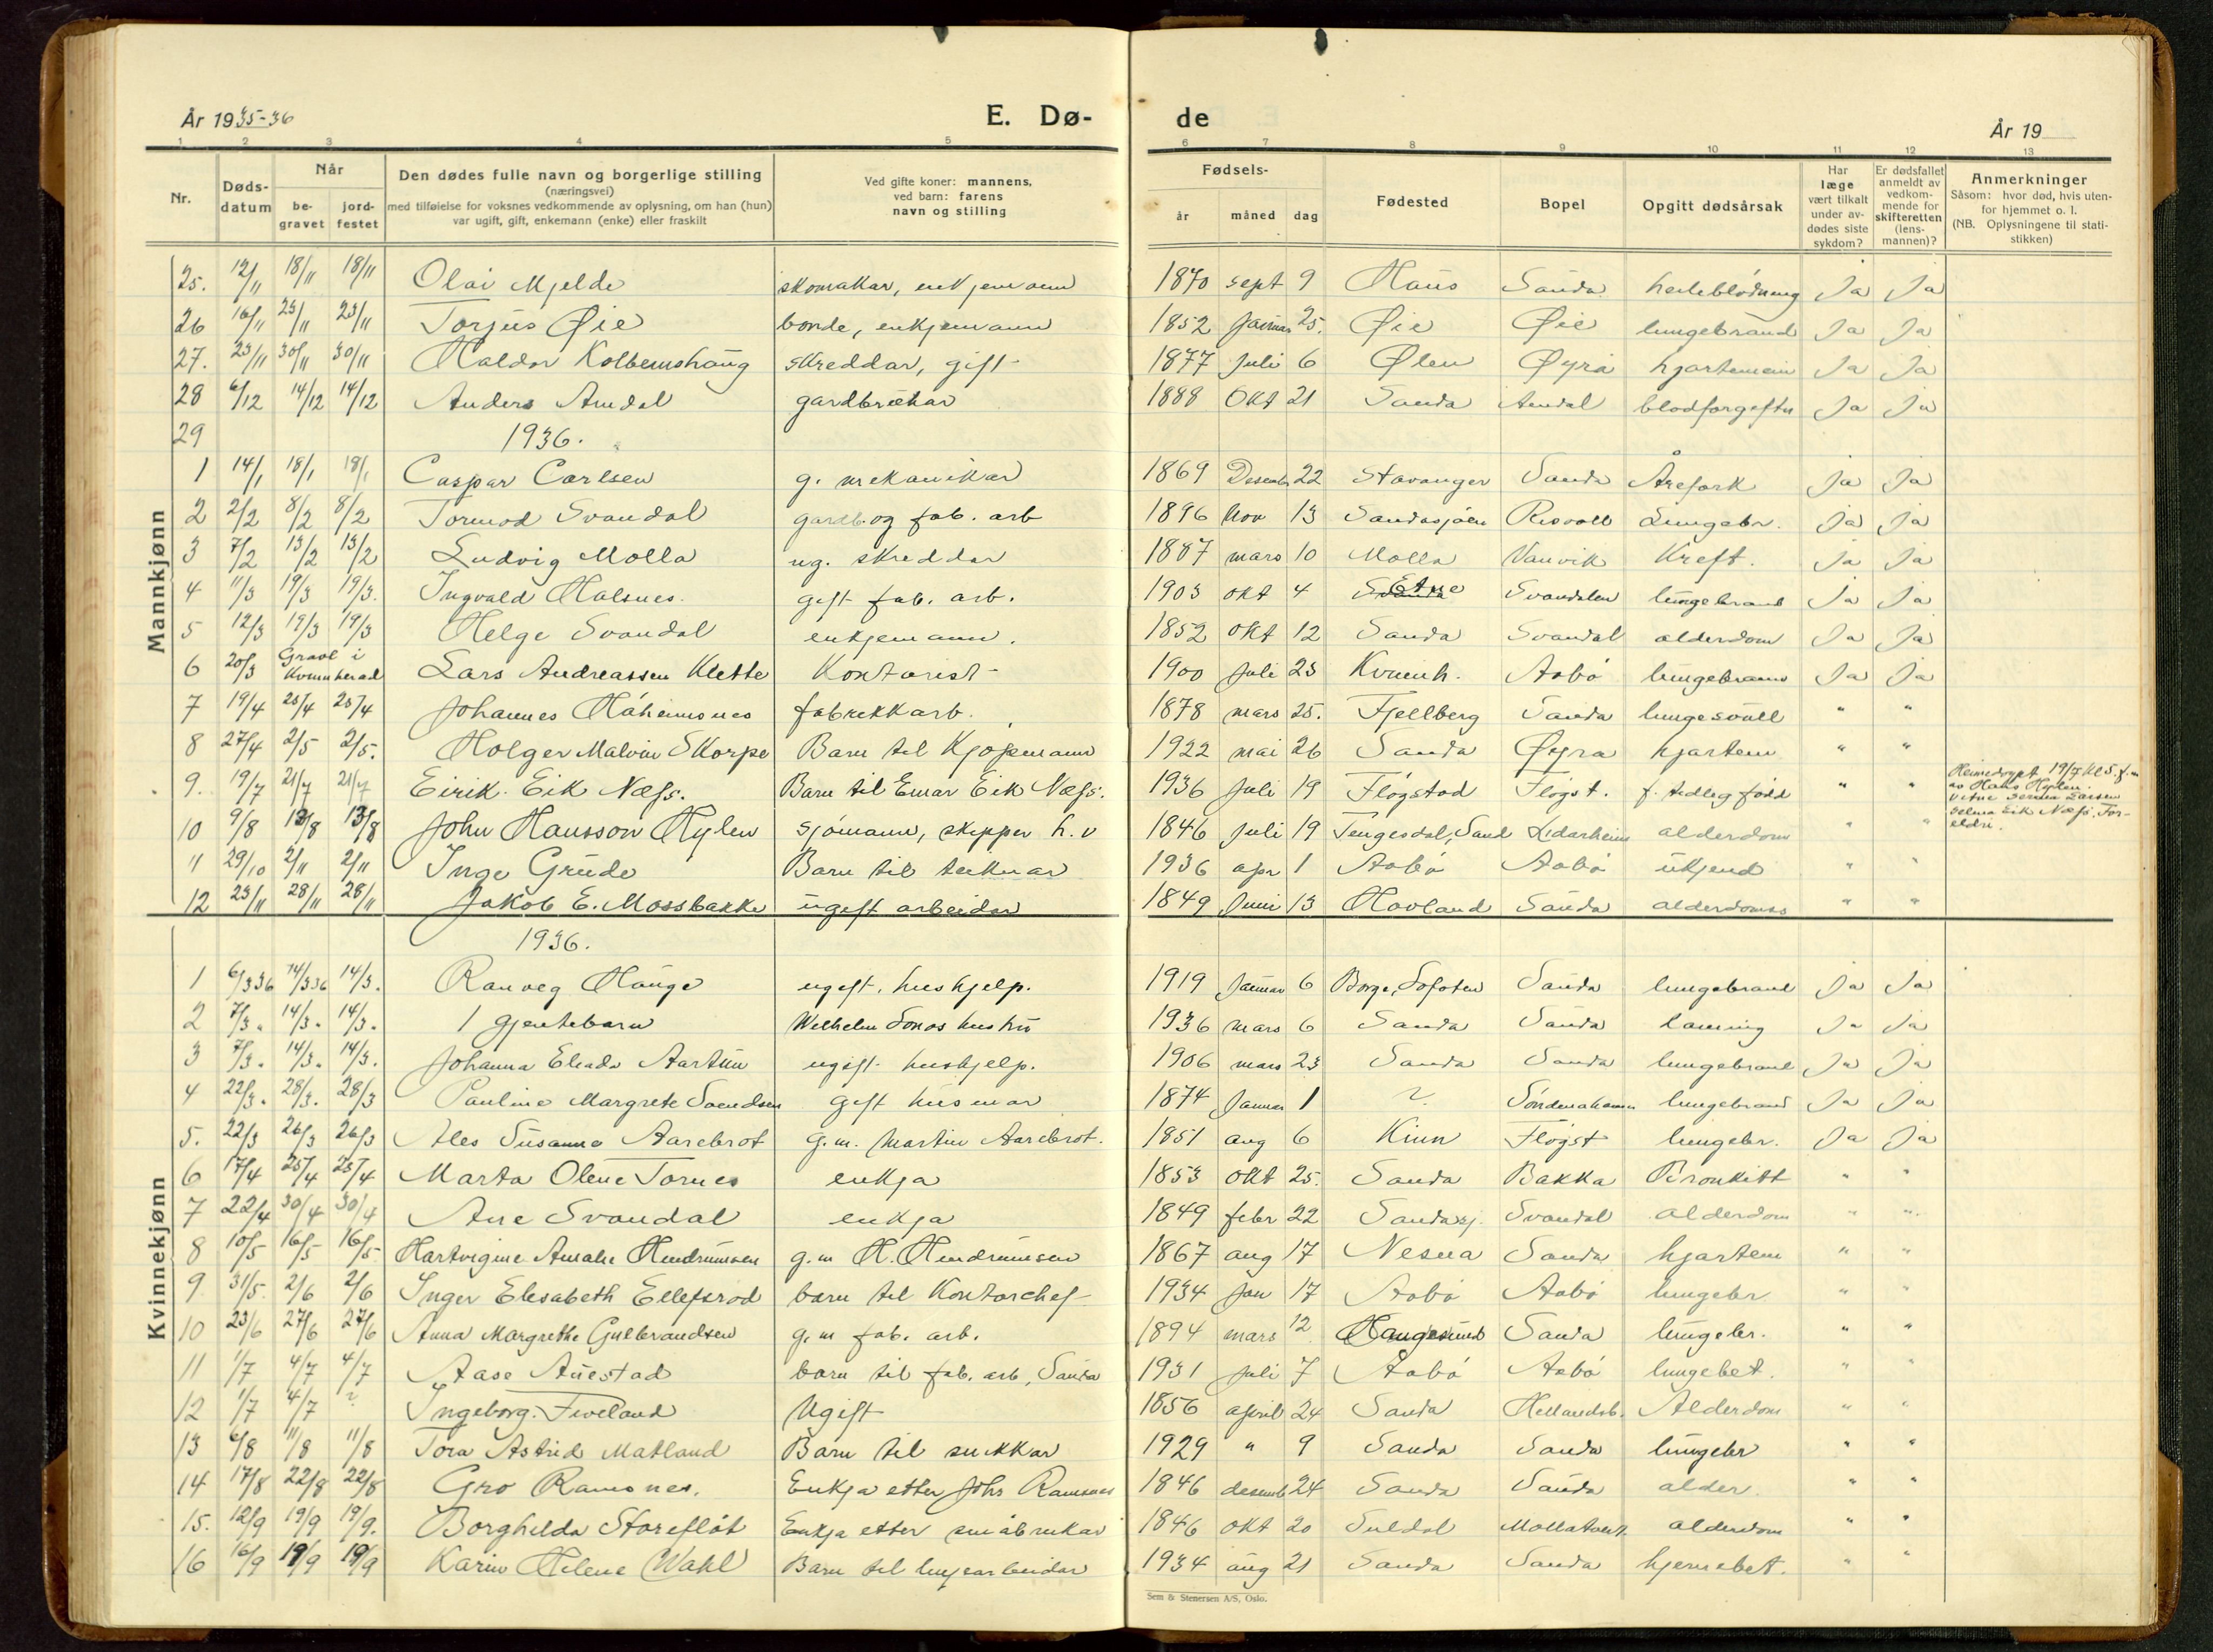 År 1935-36
E. Dø-
de
År 19
1 2 3 4 5 6 7 8 9 10 11 12 13
Nr.
Døds-
datum
Når
be-
gravet
jord-
festet
Den dødes fulle navn og borgerlige stilling
(næringsvei)
med tilføielse for voksnes vedkommende av oplysning, om han (hun)
var ugift, gift, enkemann (enke) eller fraskilt
Ved gifte koner: mannens,
ved barn: farens
navn og stilling
Fødsels-
år måned dag
Fødested
Bopel
Opgitt dødsårsak
Har
læge
vært tilkalt
under av-
dødes siste
sykdom?
Er dødsfallet
anmeldt av
vedkom-
mende for
skifteretten
(lens-
mannen)?
Anmerkninger
Såsom: hvor død, hvis uten-
for hjemmet o. l.
(NB. Oplysningene til stati-
stikken)
Mannkjønn
25. 12/11 18/11 18/11 Olai Mjelde skomakar, enkjemann 1870 sept 9 Haus Sauda heileblødning Ja Ja
26 16/11 23/11 23/11 Torjus Øie bonde, enkjemann 1852 januar 25. Øie Øie lungebrand Ja Ja
27. 23/11 30/11 30/11 Haldor Kolbeinshaug skreddar, gift 1877 juli 6 Ølen Øyra hjartemein Ja Ja
28 6/12 14/12 14/12 Anders Amdal gardbrukar 1888 Okt 21 Sauda Amdal blodforgiftn Ja Ja
29 1936.
1 14/1 18/1 18/1 Caspar Carlsen g. mekanikar 1869 Desember 22 Stavanger Sauda Årefork Ja Ja
2 2/2 8/2 8/2 Tormod Svandal gardb. og fab. arb 1896 Nov 13 Saudasjøen Risvoll Lungebr. Ja Ja
3 7/2 13/2 13/2 Ludvig Molla ug. skreddar 1887 mars 10 Molla Vanvik Kreft. Ja Ja
4 11/3 19/3 19/3. Ingvald Halsnes. gift fab. arb. 1903 okt 4 Etne Svandalen lungebrand Ja Ja
5 12/3 19/3 19/3 Helge Svandal enkjemann. 1852 okt 12 Sauda Svandal alderdom Ja Ja
6 20/3 Gravl i Kvinnherad Lars Andreassen Klette Kontorist 1900 juli 23 Kvinnh. Aabø lungebrann Ja Ja
7 19/4 25/4 25/4 Johannes Håheimsnes fabrikkarb. 1878 mars 25. Fjellberg Sauda lungesvull " "
8 27/4 2/5 2/5. Holger Malvin Skorpe Barn til Kjøpmann 1922 mai 26 Sauda Øyra hjartem " "
9. 19/7 21/7 21/7 Eirik Eik Næss. Barn til Einar Eik Næss. 1936 juli 19 Fløgstad Fløgst. f. tidleg fødd " "
Heimedøypt 19/7 kl 5. f.m
av Hans Hylen.
Vitne
Selma Eik Næss. For-
eldri.
10 9/8 13/8 13/8 John Hansson Hylen sjømann, skipper h. v 1846 juli 19 Tengesdal, Sand Lidarheim alderdom " "
11 29/10 2/11 2/11 Inge Grude Barn til teknar 1936 apr 1 Aabø Aabø ukjend " "
12 23/11 28/11 28/11 Jakob E. Mossbakke ugift arbeidar 1849 juni 13 Hovland Sauda alderdoms " "
Kvinnekjønn
1936.
1 6/3 36 14/3 36 14/3. Ranveg Hauge ugift, hushjelp. 1919 januar 6 Borge, Lofoten Sauda lungebrand Ja Ja
2 7/3 " 14/3 " 14/3 " 1 gjentebarn Wilhelm Sonas hustru 1936 mars 6 Sauda Sauda lamning Ja Ja
3 7/3 " 14/3 " 14/3. Johanna Elida Aartun ugift hushjelp. 1906 mars 23 Sauda Sauda lungebrand Ja Ja
4 22/3 " 28/3. 28/3 Pauline Margrete Svendsen gift husmor 1874 Januar 1 ? Søndenahamn lungebrand Ja Ja
5. 22/3 26/3 26/3 Ales Susanna Aarebrot g.m. Martin Aarebrot. 1851 aug 6 Kinn Fløgst lungebr. Ja Ja
6 17/4 25/4 25/4 Marta Olene Tornes enkja 1853 okt 25. Sauda Bakka Bronkitt " "
7 22/4 30/4 30/4 Ane Svandal enkja 1849 febr 22 Saudasj. Svandal alderdom " "
8 10/5 16/5 16/5 Hartvigine Amalie Hendrumsen g.m H. Hendrumsen 1867 aug 17 Nesna Sauda hjartem " "
9 31/5. 2/6 2/6 Inger Elisabeth Ellefsrød barn til Kontorchef 1934 jan 17 Aabø Aabø lungebr " "
10 23/6 27/6 27/6 Anna Margrethe Gulbrandsen g.m fab. arb. 1894 mars 12 Haugesund Sauda lungebr. " "
11 1/7 4/7 4/7 Aase Austad barn til fab. arb, Sauda 1931 juli 7 Aabø Aabø lungebet. " "
12 1/7 4/7 ? Ingeborg Fiveland Ugift 1856 april 24 Sauda Hellandsb. Alderdom " "
13 6/8 11/8 11/8 Tora Astrid Matland Barn til snikkar 1929 " 9 Sauda Sauda lungebr " "
14 17/8 22/8 22/8 Gro Ramsnes. Enkja etter Johs Ramsnes 1846 desemb 24 Sauda Sauda alder. " "
15. 12/9 19/9 19/9. Borghilda Storefløt Enkja etter småbrukar 1846 okt 20 Suldal alderdom " "
16 16/9 19/9 19/9 Karin Helene Wahl Barn til linjearbeidar 1934 aug 21 Sauda Sauda hjernebet. " "
Sem & Stenersen A/S, Oslo.